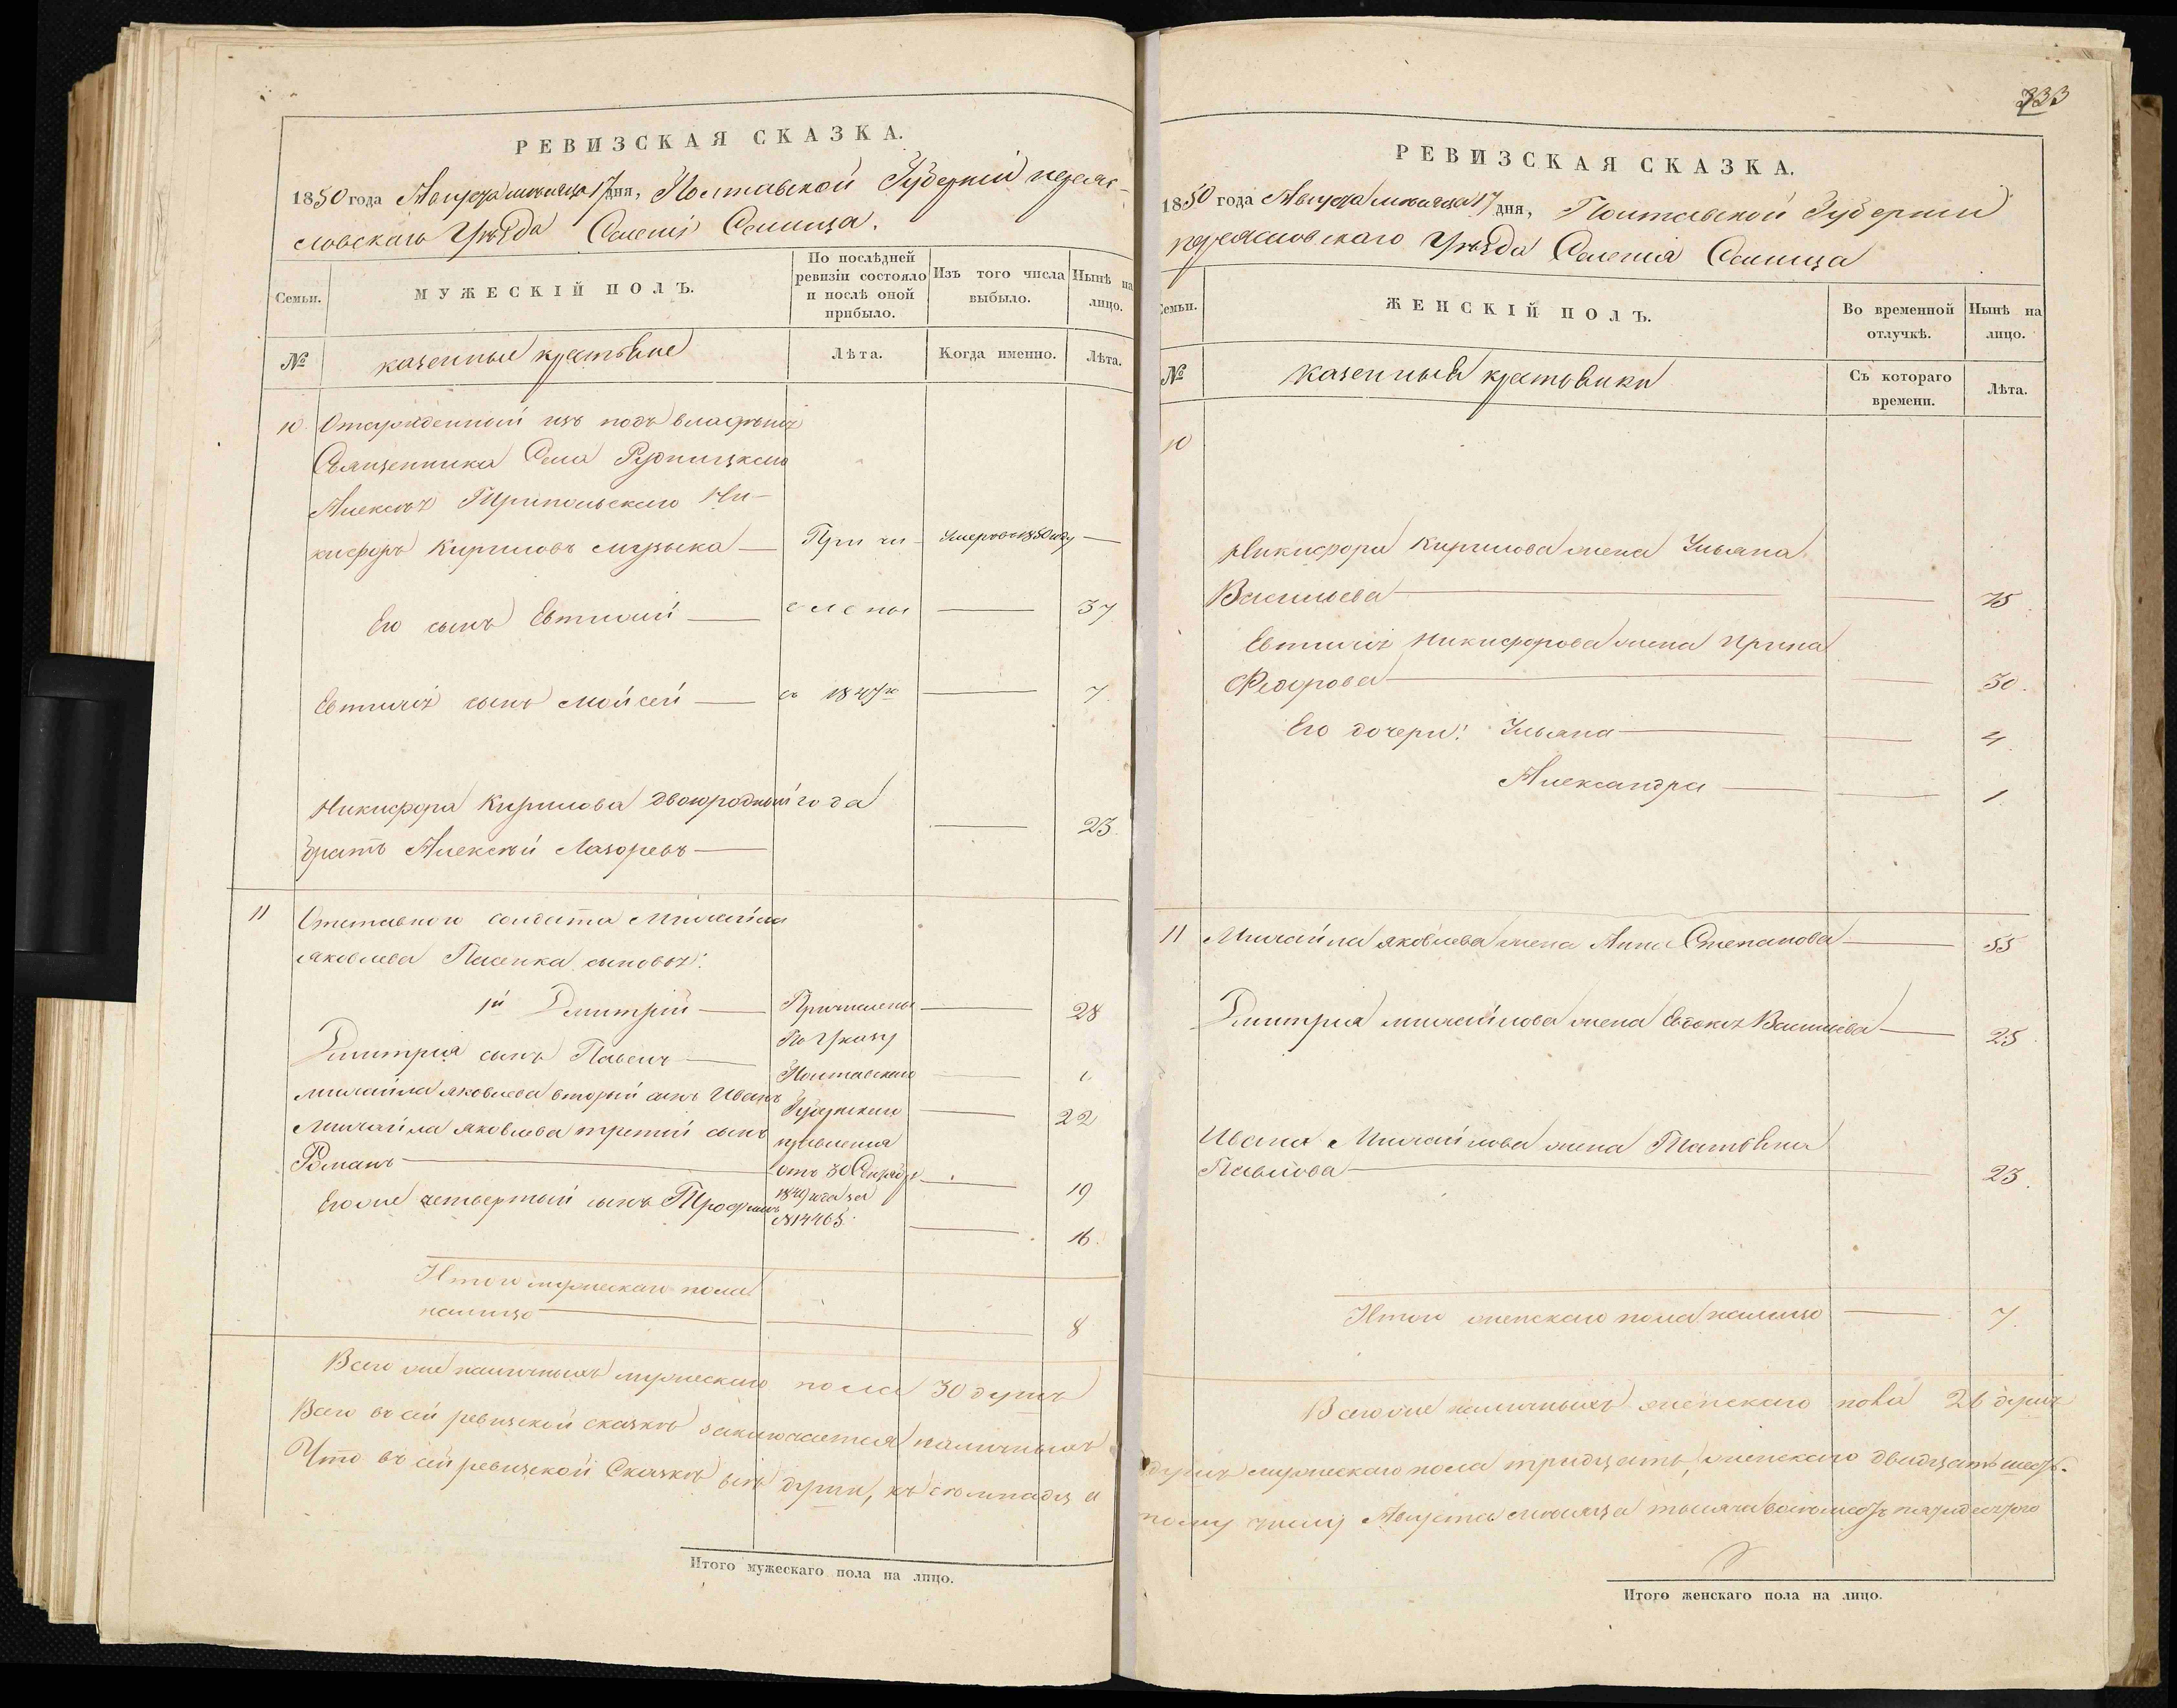 РЕВИЗСКАЯ СКАЗКА.
1850 года Августа месяца 17 дня, Полтавской Губернiи переяс-
словскаго Уѣзда Селенiя Селища.
Семьи.
МУЖЕСКIЙ ПОЛЪ.
По послѣдней ревизiи состояло и послѣ оной прибыло.
Изъ того числа выбыло.
Нынѣ на лицо.
№
казенные крестьяне
Лѣта.
Когда именно.
Лѣта.
10 Отсужденный изъ подъ владѣнiя
Священника Села
Алексѣя Трипольскаго Ни-
кифоръ Кириловъ музыка — При чи- умеръ въ 1850 году —
Его сынъ Евтихiй — слены — 37
Евтихiя сынъ Мойсей — съ 1847го — 7
Никифора Кирилова двоюродный года
братъ Алексѣй Лазоревъ — — 23
11 Отставного солдата Михайла
яковлева сыновья:
1й Дмитрiй — Причислены — 28
Дмитрiя сынъ Павелъ — По Указу
Полтавскаго — 1
Михайла яковлева вторый сынъ Иванъ Губернскаго — 22
Михайла яковлева третiй сынъ правленiя
Романъ — отъ 30 — 19
Его же четвертый сынъ Трофимъ 1849 года за
№ 14463 — 16.
Итого мужескаго пола
налицо — 8
Всего же наличныхъ мужескаго пола 30 душъ
Всего въ сей ревизской сказкѣ заключается наличныхъ
Что въ сей ревизской Сказкѣ всѣ души, къ семнадца
Итого мужескаго пола на лицо.
333
РЕВИЗСКАЯ СКАЗКА.
1850 года Августа месяца 17 дня, Полтавской Губернiи
переясловскаго Уѣзда Селенiя Селища
Семьи.
ЖЕНСКIЙ ПОЛЪ.
Во временной отлучкѣ.
Нынѣ на лицо.
№
казенныя крестьянки
Съ котораго времени.
Лѣта.
10
Никифора Кирилова жена Ульяна
Васильева — — 75
Евтихiя Никифорова жена Ирина
Федорова — — 30.
Его дочери: Ульяна — — 4
Александра — — 1
11 Михайла яковлева жена Анна Степанова — 55
Дмитрiя михайлова жена Евдокiя Васильева — 25
Ивана Михайлова жена Татьяна
Павлова — 23.
Итого женскаго пола налицо — 7
Всего же наличныхъ женскаго пола 26 душъ
душъ мужескаго пола тридцать, женскаго двадцать шесть.
тому числу Августа месяца тысяча восемьсотъ пятидесятого
Итого женскаго пола на лицо.